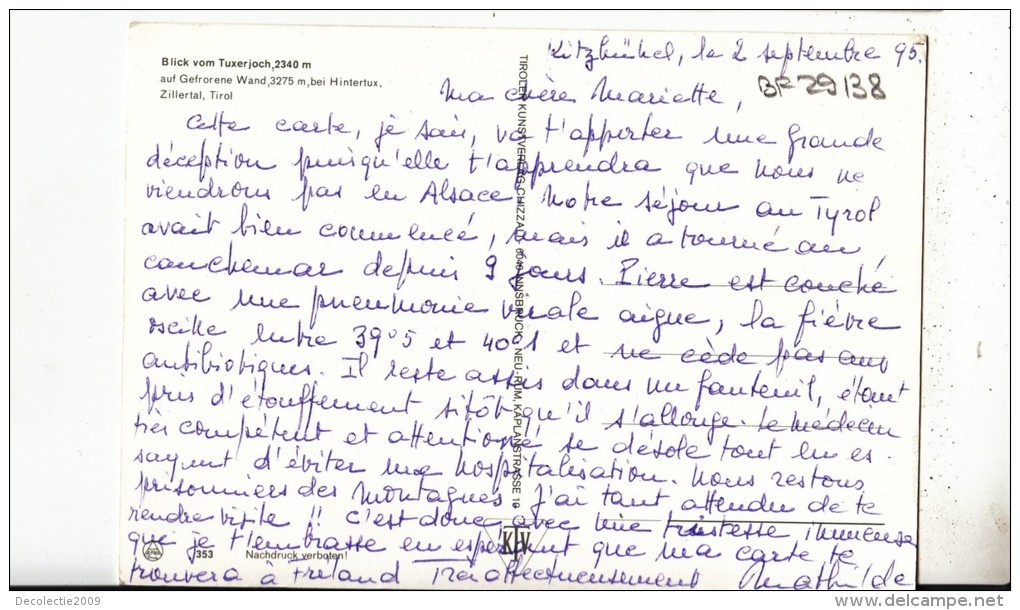 Blick vom Tuxerjoch, 2340 m
auf Gefrorene Wand, 3275 m, bei Hintertux,
Zillertal, Tirol
Kitzbühel, le 2 septembre 95.
BF 29138
Ma chère Mariette,
Cette carte, je sais, va t'apporter une grande
déception puisqu'elle t'apprendra que nous ne
viendrons pas en Alsace. Notre séjour au Tyrol
avait bien commencé, mais il a tourné au
cauchemar depuis 9 jours. Pierre est couché
avec une pneumonie virale aigue, la fièvre
oscille entre 39°5 et 40°1 et ne cède pas aux
antibiotiques. Il reste assis dans un fauteuil, étant
pris d'étouffement sitôt qu'il s'allonge. Le médecin
très compétent et attentionné se désole tout en es-
sayant d'éviter une hospitalisation. Nous restons
prisonniers des montagnes. J'ai tant attendu de te
rendre visite !! C'est donc avec une tristesse immense
que je t'embrasse en espérant que ma carte te
trouvera à Freland Très affectueusement Mathilde
TIROLER KUNSTVERLAG CHIZZALI, 6040 INNSBRUCK, NEU-RUM, KAPLANSTRASSE 10
KTV
353 Nachdruck verboten!
Decolectie2009
www.delcampe.net